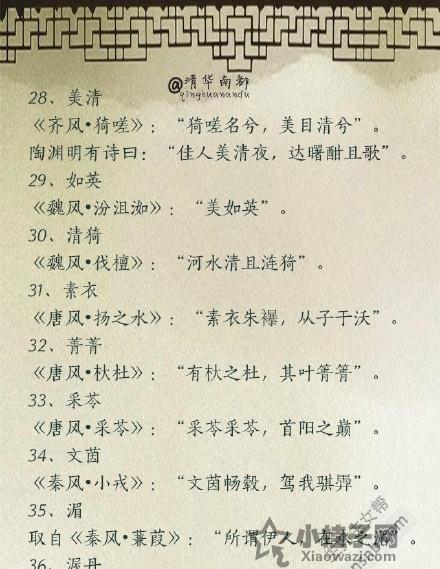 @清华南都
qinghuanandu
28、美清
《齐风•猗嗟》：“猗嗟名兮，美目清兮”。
陶渊明有诗曰：“佳人美清夜，达曙酣且歌”
29、如英
《魏风•汾沮洳》：“美如英”。
30、清猗
《魏风•伐檀》：“河水清且涟猗”。
31、素衣
《唐风•扬之水》：“素衣朱襮，从子于沃”。
32、菁菁
《唐风•杕杜》：“有杕之杜，其叶菁菁”。
33、采苓
《唐风•采苓》：“采苓采苓，首阳之巅”。
34、文茵
《秦风•小戎》：“文茵畅毂，驾我骐馵”。
35、湄
取自《秦风•蒹葭》：“所谓伊人，在水之湄”
36、渥丹
小桂子网
Xiaowazi.com